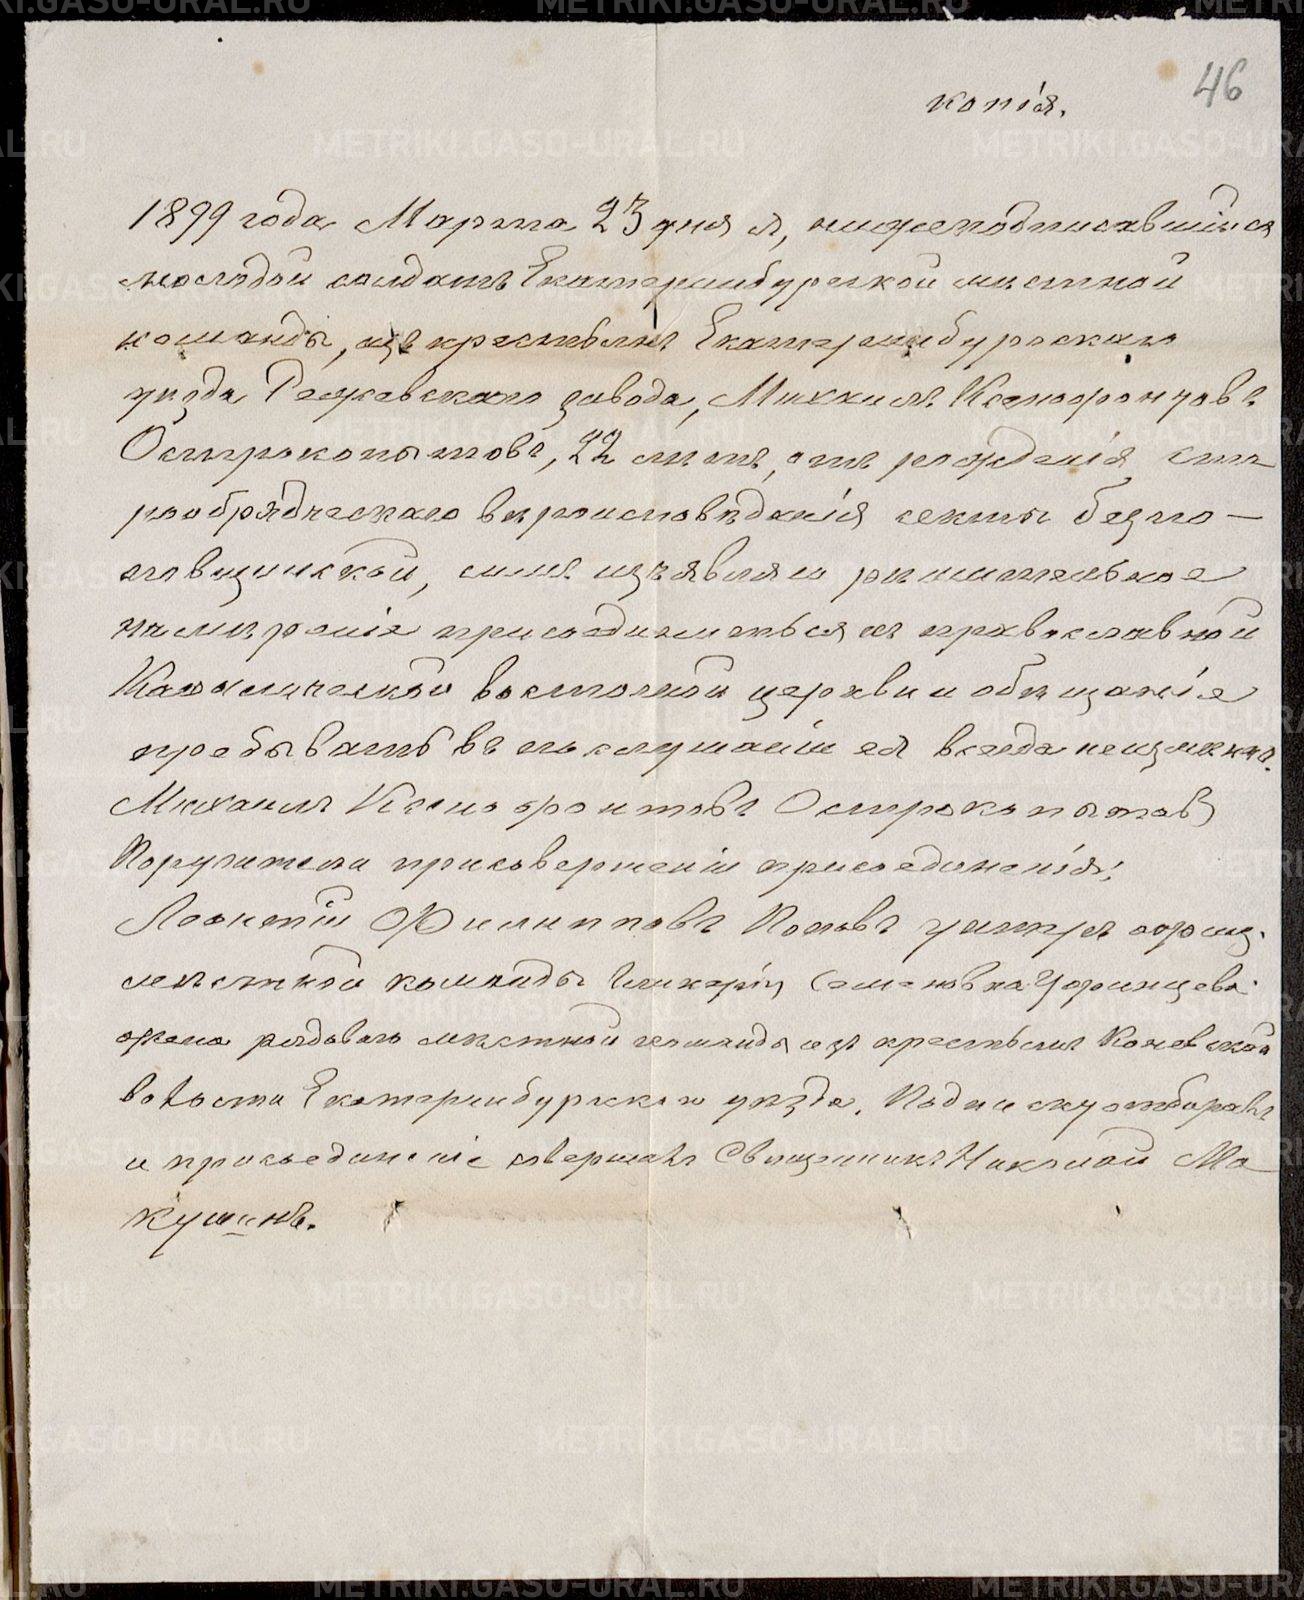 46
копія.
1899 года Марта 23 дня я, нижеподписавшійся
молодой солдатъ Екатеринбургской мѣстной
команды, изъ крестьянъ Екатеринбургскаго
уѣзда Режевскаго завода, Михаилъ Ксенофонтовъ
Острокопытовъ, 22 лѣтъ, отъ рожденія, ста
рообрядческаго вѣроисповѣданія секты безпо-
повщинской, симъ изъявляю рѣшительное
намѣреніе присоединиться къ православной
Каѳолической восточной церкви и обѣщаніе
пребывать въ послушаніи ея всегда неизмѣнно.
Михаилъ Ксенофонтовъ Острокопытовъ
Поручители при совершеніи присоединенія:
Леонтій Филипповъ Поповъ унтеръ офиц.
мѣстной команды Гликерія Семеновна
жена рядоваго мѣстной команды изъ крестьянъ Коневской
волости Екатеринбургскаго уѣзда. Подписку отбиралъ
и присоединеніе совершалъ Священникъ Николай Ма
кушинъ.
METRIKI.GASO-URAL.RU